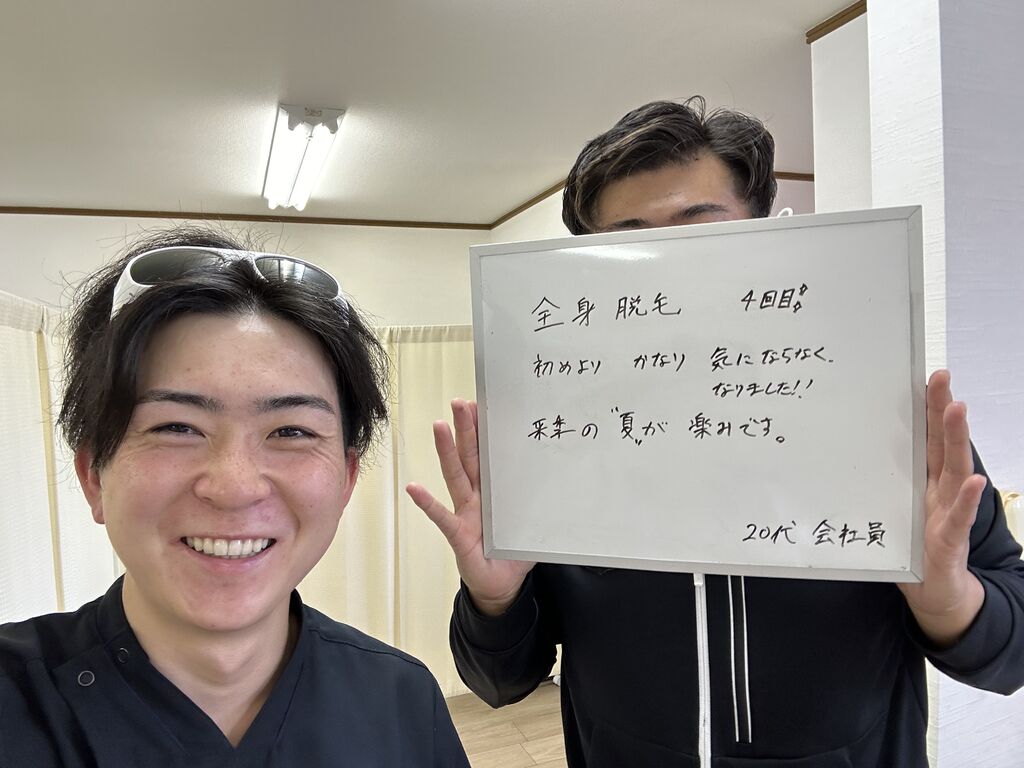 全身脱毛 4回目!!
初めより かなり 気にならなく
なりました!!
来年の "夏" が 楽みです。
20代 会社員